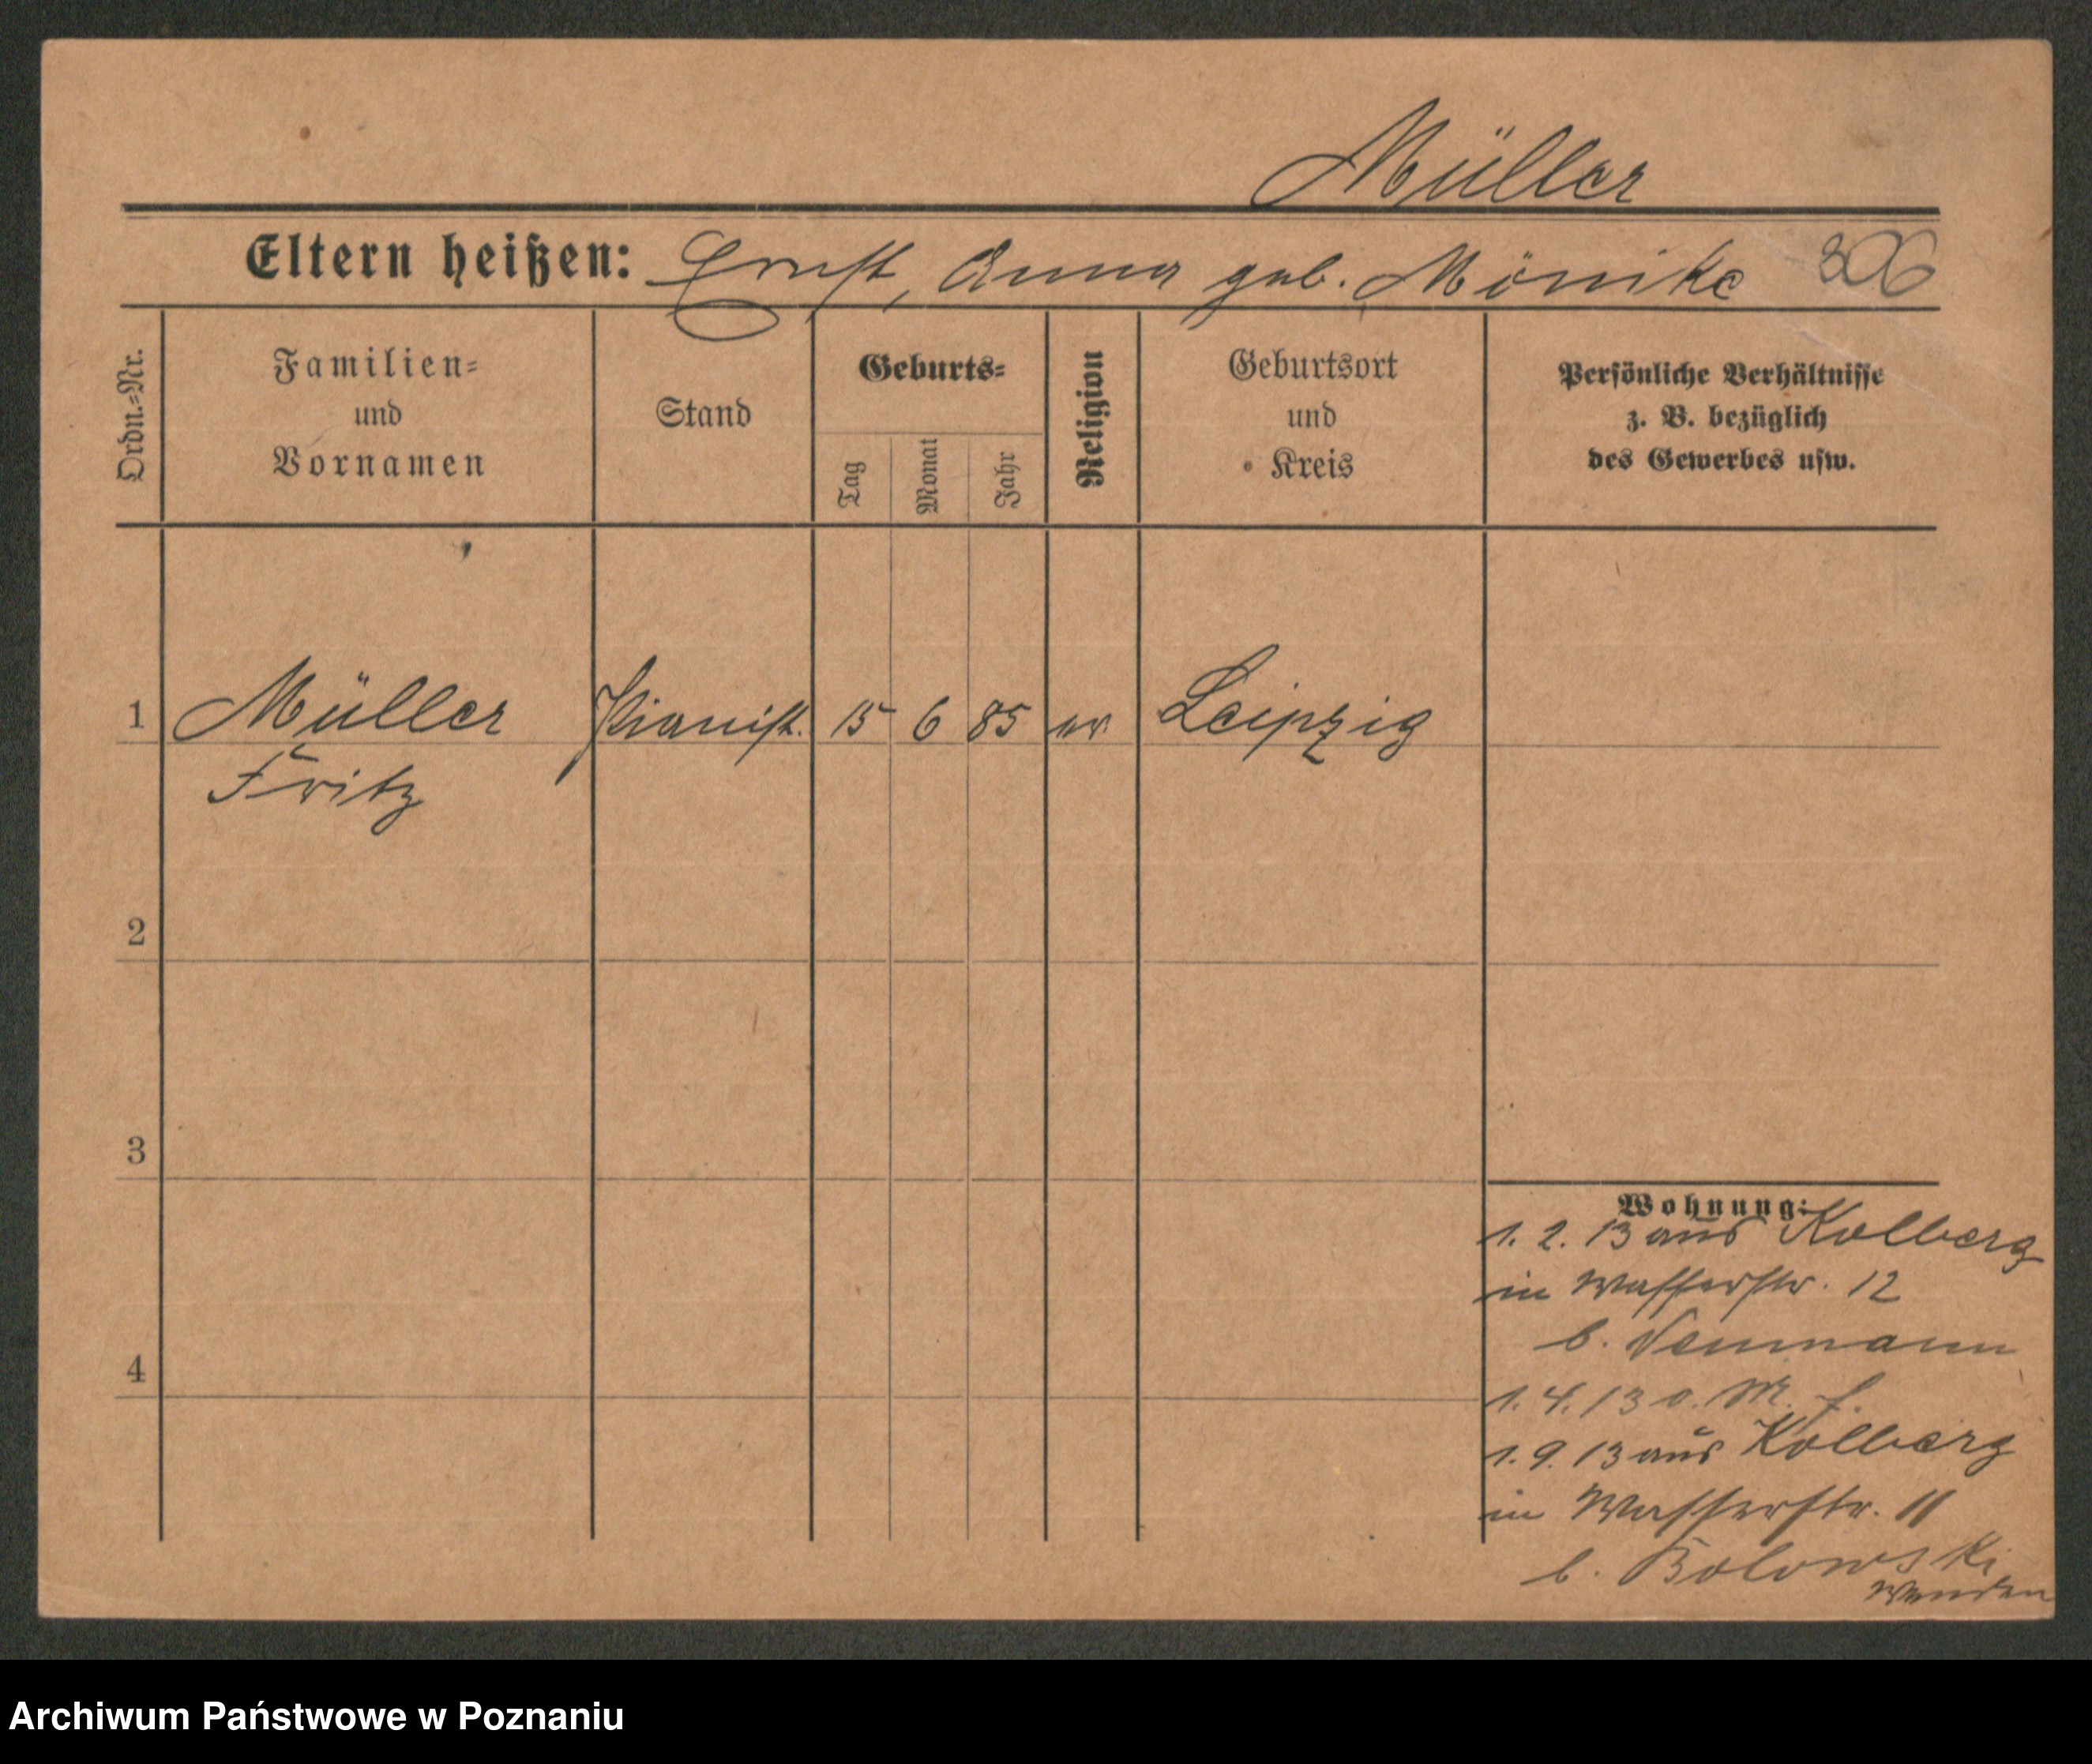 Müller
Eltern heißen: Ernst, Anna geb. Mönike 306
Ordn.=Nr.
Familien=
und
Vornamen
Stand
Geburts=
Tag
Monat
Jahr
Religion
Geburtsort
und
Kreis
Persönliche Verhältnisse
z. B. bezüglich
des Gewerbes usw.
1 Müller Pianist. 15 6 85 ev. Leipzig
Fritz
2
3
4
Wohnung:
1. 2. 13 aus Kolberg
in Wasserstr. 12
b. Neumann
1. 4. 13 a. M. f.
1. 9. 13 aus Kolberg
in Wasserstr. 11
b. Bolowski
wenden
Archiwum Państwowe w Poznaniu